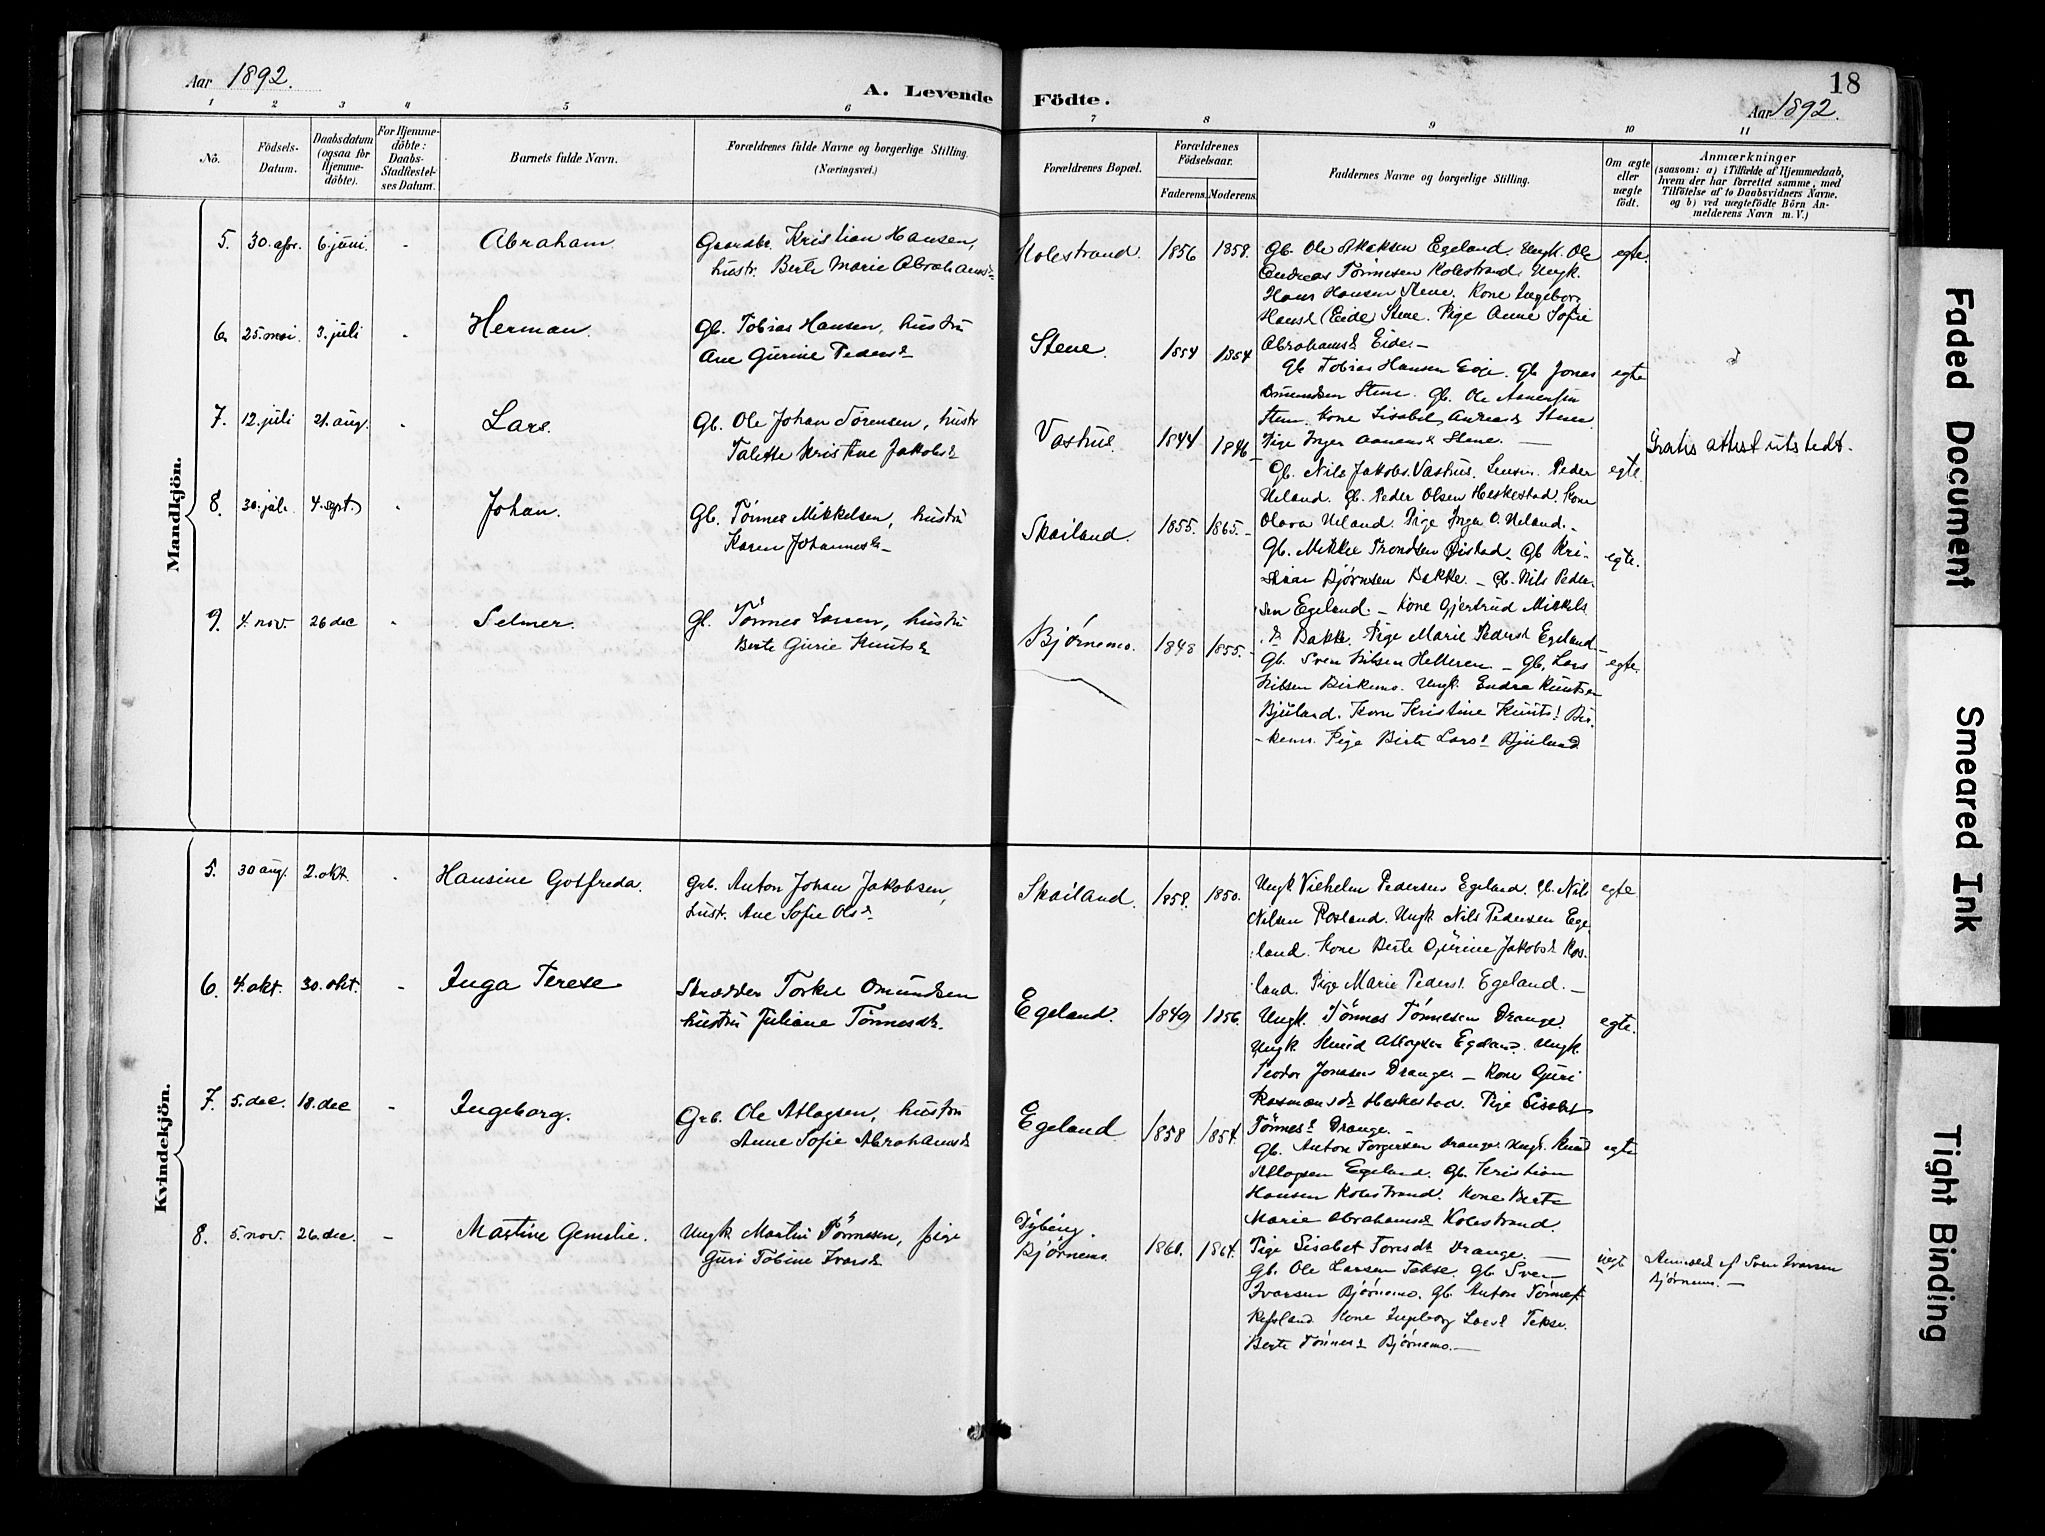 Aar 1892.
A. Levende Födte.
18
Aar 1892.
1 2 3 4 5 6 7 8 9 10 11
Nô.
Födsels-Datum.
Daabsdatum (ogsaa för Hjemme-döbte).
For Hjemme-döbte: Daabs-Stadfæstel-ses Datum.
Barnets fulde Navn.
Forældrenes fulde Navne og borgerlige Stilling. (Næringsvei.)
Forældrenes Bopæl.
Forældrenes Födselsaar.
Faderens. Moderens.
Faddernes Navne og borgerlige Stilling.
Om ægte eller uægte födt.
Anmærkninger
(saasom: a) i Tilfælde af Hjemmedaab,
hvem der har forrettet samme, med
Tilföielse af to Daabsvidners Navne.
og b) ved uægtefödte Börn An-
melderens Navn m. V.)
Mandkjön.
5. 30. apr. 6 juni. - Abraham. Gaardbr. Kristian Hansen,
hustr. Berte Marie Abrahamsd.
Kolestrand. 1856 1858.
Gb. Ole Egeland. Ungk. Ole
Andreas Tönnesen Kolestrand. Ungk.
Hans Hansen Stene. Kone Ingeborg
Hansd (Eide) Stene. Pige Anne Sofie
Abrahamsd Eide. -
egte.
6. 25. mai. 3. juli - Herman. Gb. Tobias Hansen, hustru
Ane Gurine Pedersd
Stene. 1854 1854
Gb Tobias Hansen Eige. Gb Jonas
Omundsen Stene. Gb. Ole
Stene. Kone Lisabet Andreasd Stene
Pige Inger Stene. -
egte
7. 12. juli 21. aug. - Lars. Gb. Ole Johan Sørensen, hustr
Talette Kristine Jakobsd
Vashus. 1844 1846
Gb. Nils Jakobs. Vashus. Peder
Ueland. Gb. Peder Olsen Heskestad. Kone
Olava Ueland. Pige Inga O. Ueland. -
egte.
Gratis attest utstedt.
8. 30. juli. 4. sept. - Johan. Gb. Tönnes Mikkelsen, hustru
Karen Johannesd -
Skailand. 1855. 1865.
Gb. Mikkel Trondsen Gb Kri-
stian Bjørnsen Bakke. - Gb. Nils Peder-
sen Egeland. - Kone Gjertrud Mikkels
d Bakke. Pige Marie Pedersd Egeland -
egte.
9. 4. nov. 26 dec - Selmer. Tönnes Larsen, hustru
Berte Gurie Knutsd
Bjørnemo. 1848 1855.
Gb. Sven Nilsen Helleren. - Gb. Lars
Nilsen Birkemo. Ungk. Endre Knutsen
Bjuland. Kone Kristine Knutsd Bir-
-kemo. Pige Berte Larsd Bjuland
egte.
Kvindekjön.
5. 30 aug. 2. okt. - Hansine Gotfreda. Grb. Anton Johan Jakobsen,
hust. Ane Sofie Olsd
Skailand. 1858. 1850.
Ungk Vilhelm Pedersen Egeland. Gb. Nils
Nilsen Rosland. Ungk Nils Pedersen Ege-
land. Kone Berte Gurine Jakobsd Ros-
land. Pige Marie Pedersd. Egeland. -
egte
6. 4. okt. 30. okt. - Inga Terese Skrædder Torkel Omundsen
hustru Juliane Tönnesdt.
Egeland. 1849 1856.
Ungk. Tönnes Tönnesen Drange.
Ungk. Knud Atlagsen Egeland. Ungk.
Teodor Jonasen Drange - Kone Guri
Rasmusd Heskestad. Pige Lisabet
Tönnesd Drange. -
egte.
7. 5. dec. 18. dec - Ingeborg. Grb. Ole Atlagsen, hustru
Anne Sofie Abrahamsd
Egeland 1858 1854.
Gb. Anton Torgersen Drange. Ungk. Knud
Atlagsen Egeland. Gb. Kristian
Hansen Kolestrand. Kone Berte
Marie Abrahamsd Kolestrand.
Pige Lisabet Drange. -
egte
8. 5. nov. 26. dec. - Martine Gemelie. Ungk Martin Tönnesen, pige
Guri Tobine Ivarsd
Bjørnemo. 1864.
Gb. Ole Larsen Tekse. Gb Sven
Ivarsen Bjørnemo. Gb. Anton Tönnes
Refsland Kone Ingeborg Larsd Tekse.
Berte Tönnesd Bjørnemo. -
uegt
Anmeldt af Sven Ivarsen
Bjørnemo. -
Faded Document
Smeared Ink
Tight Binding